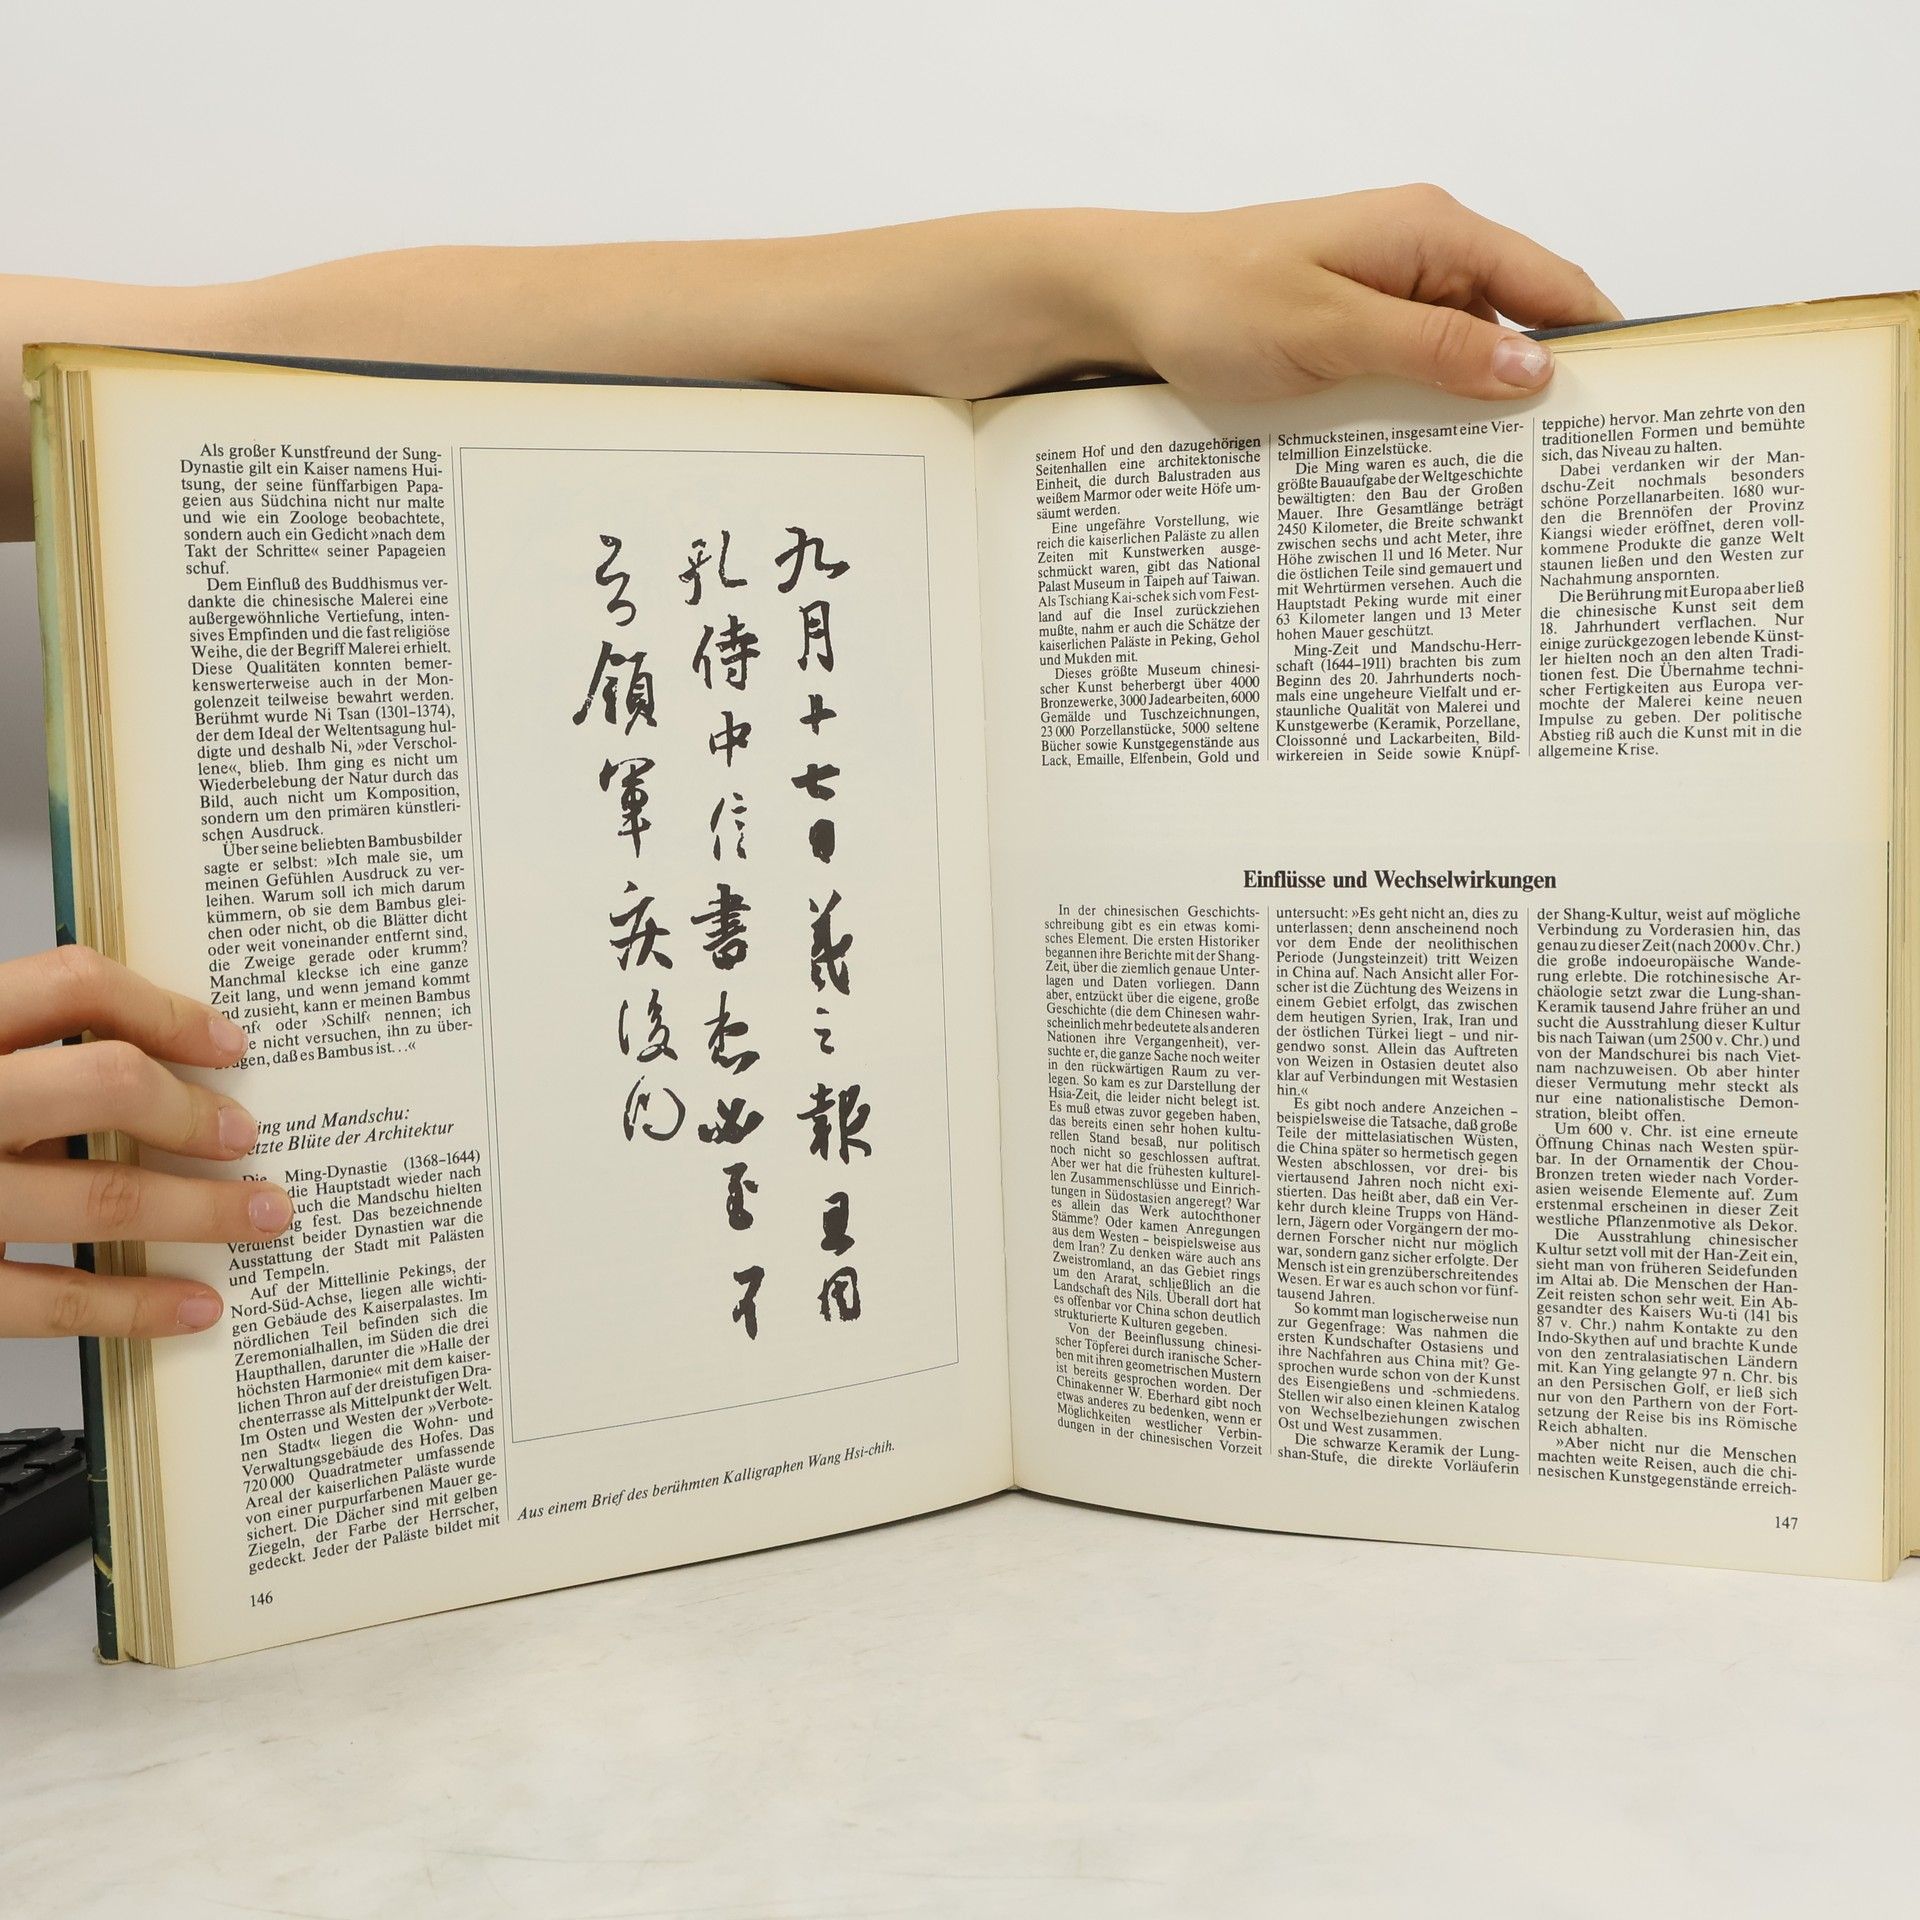 Als großer Kunstfreund der Sung-
Dynastie gilt ein Kaiser namens Hui-
tsung, der seine fünffarbigen Papa-
geien aus Südchina nicht nur malte
und wie ein Zoologe beobachtete,
sondern auch ein Gedicht »nach dem
Takt der Schritte« seiner Papageien
schuf.
Dem Einfluß des Buddhismus ver-
dankte die chinesische Malerei eine
außergewöhnliche Vertiefung, inten-
sives Empfinden und die fast religiöse
Weihe, die der Begriff Malerei erhielt.
Diese Qualitäten konnten bemer-
kenswerterweise auch in der Mon-
golenzeit teilweise bewahrt werden.
Berühmt wurde Ni Tsan (1301–1374),
der dem Ideal der Weltentsagung hul-
digte und deshalb Ni, »der Verschol-
lene«, blieb. Ihm ging es nicht um
Wiederbelebung der Natur durch das
Bild, auch nicht um Komposition,
sondern um den primären künstleri-
schen Ausdruck.
Über seine beliebten Bambusbilder
sagte er selbst: »Ich male sie, um
meinen Gefühlen Ausdruck zu ver-
leihen. Warum soll ich mich darum
kümmern, ob sie dem Bambus glei-
chen oder nicht, ob die Blätter dicht
oder weit voneinander entfernt sind,
die Zweige gerade oder krumm?
Manchmal kleckse ich eine ganze
Zeit lang, und wenn jemand kommt
und zusieht, kann er meinen Bambus
oder ›Schilf‹ nennen; ich
nicht versuchen, ihn zu über-
zeugen, daß es Bambus ist…«
Ming und Mandschu:
letzte Blüte der Architektur
Die Ming-Dynastie (1368–1644)
die Hauptstadt wieder nach
Auch die Mandschu hielten
fest. Das bezeichnende
Verdienst beider Dynastien war die
Ausstattung der Stadt mit Palästen
und Tempeln.
Auf der Mittellinie Pekings, der
Nord-Süd-Achse, liegen alle wichti-
gen Gebäude des Kaiserpalastes. Im
nördlichen Teil befinden sich die
Zeremonialhallen, im Süden die drei
Haupthallen, darunter die »Halle der
höchsten Harmonie« mit dem kaiser-
lichen Thron auf der dreistufigen Dra-
chenterrasse als Mittelpunkt der Welt.
Im Osten und Westen der »Verbote-
nen Stadt« liegen die Wohn- und
Verwaltungsgebäude des Hofes. Das
720 000 Quadratmeter umfassende
Areal der kaiserlichen Paläste wurde
von einer purpurfarbenen Mauer ge-
sichert. Die Dächer sind mit gelben
Ziegeln, der Farbe der Herrscher,
gedeckt. Jeder der Paläste bildet mit
146
九月十七日羲之報且因
孔侍中信書想必至不
知領軍疾後問
Aus einem Brief des berühmten Kalligraphen Wang Hsi-chih.
seinem Hof und den dazugehörigen
Seitenhallen eine architektonische
Einheit, die durch Balustraden aus
weißem Marmor oder weite Höfe um-
säumt werden.
Eine ungefähre Vorstellung, wie
reich die kaiserlichen Paläste zu allen
Zeiten mit Kunstwerken ausge-
schmückt waren, gibt das National
Palast Museum in Taipeh auf Taiwan.
Als Tschiang Kai-schek sich vom Fest-
land auf die Insel zurückziehen
mußte, nahm er auch die Schätze der
kaiserlichen Paläste in Peking, Gehol
und Mukden mit.
Dieses größte Museum chinesi-
scher Kunst beherbergt über 4000
Bronzewerke, 3000 Jadearbeiten, 6000
Gemälde und Tuschzeichnungen,
23 000 Porzellanstücke, 5000 seltene
Bücher sowie Kunstgegenstände aus
Lack, Emaille, Elfenbein, Gold und
Schmucksteinen, insgesamt eine Vier-
telmillion Einzelstücke.
Die Ming waren es auch, die die
größte Bauaufgabe der Weltgeschichte
bewältigten: den Bau der Großen
Mauer. Ihre Gesamtlänge beträgt
2450 Kilometer, die Breite schwankt
zwischen sechs und acht Meter, ihre
Höhe zwischen 11 und 16 Meter. Nur
die östlichen Teile sind gemauert und
mit Wehrtürmen versehen. Auch die
Hauptstadt Peking wurde mit einer
63 Kilometer langen und 13 Meter
hohen Mauer geschützt.
Ming-Zeit und Mandschu-Herr-
schaft (1644–1911) brachten bis zum
Beginn des 20. Jahrhunderts noch-
mals eine ungeheure Vielfalt und er-
staunliche Qualität von Malerei und
Kunstgewerbe (Keramik, Porzellane,
Cloissonné und Lackarbeiten, Bild-
wirkereien in Seide sowie Knüpf-
teppiche) hervor. Man zehrte von den
traditionellen Formen und bemühte
sich, das Niveau zu halten.
Dabei verdanken wir der Man-
dschu-Zeit nochmals besonders
schöne Porzellanarbeiten. 1680 wur-
den die Brennöfen der Provinz
Kiangsi wieder eröffnet, deren voll-
kommene Produkte die ganze Welt
staunen ließen und den Westen zur
Nachahmung anspornten.
Die Berührung mit Europa aber ließ
die chinesische Kunst seit dem
18. Jahrhundert verflachen. Nur
einige zurückgezogen lebende Künst-
ler hielten noch an den alten Tradi-
tionen fest. Die Übernahme techni-
scher Fertigkeiten aus Europa ver-
mochte der Malerei keine neuen
Impulse zu geben. Der politische
Abstieg riß auch die Kunst mit in die
allgemeine Krise.
Einflüsse und Wechselwirkungen
In der chinesischen Geschichts-
schreibung gibt es ein etwas komi-
sches Element. Die ersten Historiker
begannen ihre Berichte mit der Shang-
Zeit, über die ziemlich genaue Unter-
lagen und Daten vorliegen. Dann
aber, entzückt über die eigene, große
Geschichte (die dem Chinesen wahr-
scheinlich mehr bedeutete als anderen
Nationen ihre Vergangenheit), ver-
suchte er, die ganze Sache noch weiter
in den rückwärtigen Raum zu ver-
legen. So kam es zur Darstellung der
Hsia-Zeit, die leider nicht belegt ist.
Es muß etwas zuvor gegeben haben,
das bereits einen sehr hohen kultu-
rellen Stand besaß, nur politisch
noch nicht so geschlossen auftrat.
Aber wer hat die frühesten kulturel-
len Zusammenschlüsse und Einrich-
tungen in Südostasien angeregt? War
es allein das Werk autochthoner
Stämme? Oder kamen Anregungen
aus dem Westen – beispielsweise aus
dem Iran? Zu denken wäre auch ans
Zweistromland, an das Gebiet rings
um den Ararat, schließlich an die
Landschaft des Nils. Überall dort hat
es offenbar vor China schon deutlich
strukturierte Kulturen gegeben.
Von der Beeinflussung chinesi-
scher Töpferei durch iranische Scher-
ben mit ihren geometrischen Mustern
ist bereits gesprochen worden. Der
Chinakenner W. Eberhard gibt noch
etwas anderes zu bedenken, wenn er
Möglichkeiten westlicher Verbin-
dungen in der chinesischen Vorzeit
untersucht: »Es geht nicht an, dies zu
unterlassen; denn anscheinend noch
vor dem Ende der neolithischen
Periode (Jungsteinzeit) tritt Weizen
in China auf. Nach Ansicht aller For-
scher ist die Züchtung des Weizens in
einem Gebiet erfolgt, das zwischen
dem heutigen Syrien, Irak, Iran und
der östlichen Türkei liegt – und nir-
gendwo sonst. Allein das Auftreten
von Weizen in Ostasien deutet also
klar auf Verbindungen mit Westasien
hin.«
Es gibt noch andere Anzeichen –
beispielsweise die Tatsache, daß große
Teile der mittelasiatischen Wüsten,
die China später so hermetisch gegen
Westen abschlossen, vor drei- bis
viertausend Jahren noch nicht exi-
stierten. Das heißt aber, daß ein Ver-
kehr durch kleine Trupps von Händ-
lern, Jägern oder Vorgängern der mo-
dernen Forscher nicht nur möglich
war, sondern ganz sicher erfolgte. Der
Mensch ist ein grenzüberschreitendes
Wesen. Er war es auch schon vor fünf-
tausend Jahren.
So kommt man logischerweise nun
zur Gegenfrage: Was nahmen die
ersten Kundschafter Ostasiens und
ihre Nachfahren aus China mit? Ge-
sprochen wurde schon von der Kunst
des Eisengießens und -schmiedens.
Stellen wir also einen kleinen Katalog
von Wechselbeziehungen zwischen
Ost und West zusammen.
Die schwarze Keramik der Lung-
shan-Stufe, die direkte Vorläuferin
der Shang-Kultur, weist auf mögliche
Verbindung zu Vorderasien hin, das
genau zu dieser Zeit (nach 2000 v. Chr.)
die große indoeuropäische Wande-
rung erlebte. Die rotchinesische Ar-
chäologie setzt zwar die Lung-shan-
Keramik tausend Jahre früher an und
sucht die Ausstrahlung dieser Kultur
bis nach Taiwan (um 2500 v. Chr.) und
von der Mandschurei bis nach Viet-
nam nachzuweisen. Ob aber hinter
dieser Vermutung mehr steckt als
nur eine nationalistische Demon-
stration, bleibt offen.
Um 600 v. Chr. ist eine erneute
Öffnung Chinas nach Westen spür-
bar. In der Ornamentik der Chou-
Bronzen treten wieder nach Vorder-
asien weisende Elemente auf. Zum
erstenmal erscheinen in dieser Zeit
westliche Pflanzenmotive als Dekor.
Die Ausstrahlung chinesischer
Kultur setzt voll mit der Han-Zeit ein,
sieht man von früheren Seidefunden
im Altai ab. Die Menschen der Han-
Zeit reisten schon sehr weit. Ein Ab-
gesandter des Kaisers Wu-ti (141 bis
87 v. Chr.) nahm Kontakte zu den
Indo-Skythen auf und brachte Kunde
von den zentralasiatischen Ländern
mit. Kan Ying gelangte 97 n. Chr. bis
an den Persischen Golf, er ließ sich
nur von den Parthern von der Fort-
setzung der Reise bis ins Römische
Reich abhalten.
»Aber nicht nur die Menschen
machten weite Reisen, auch die chi-
nesischen Kunstgegenstände erreich-
147